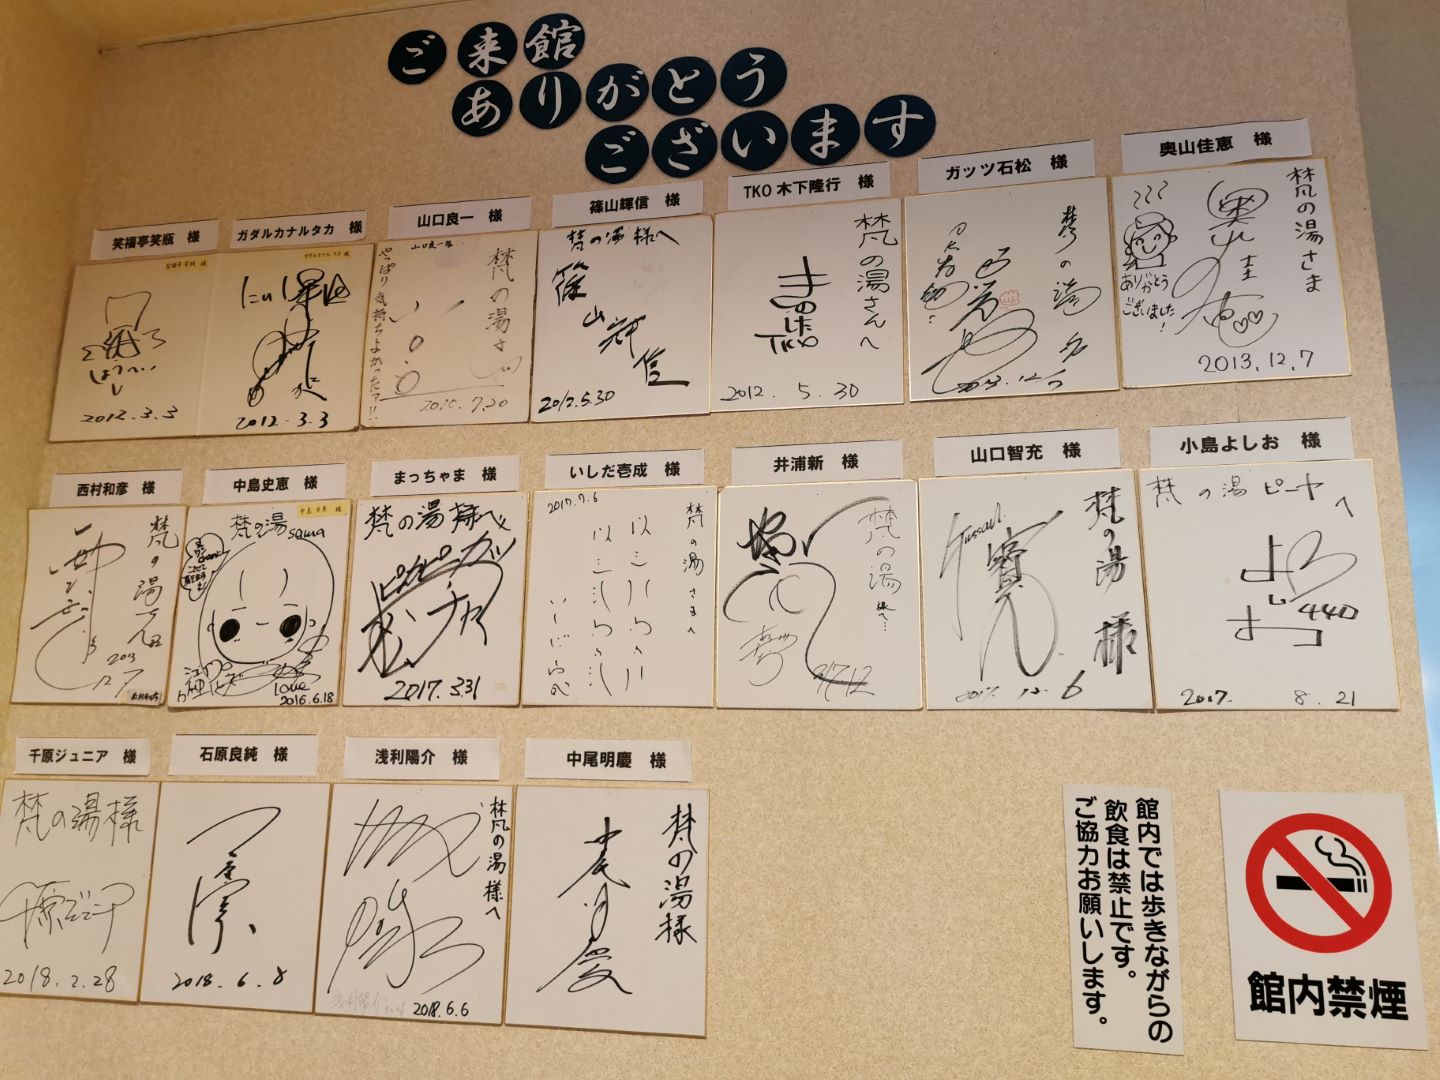 ご来館
ありがとう
ございます
笑福亭笑瓶 様
ガダルカナルタカ 様
山口良一 様
篠山輝信 様
TKO 木下隆行 様
ガッツ石松 様
奥山佳恵 様
2012.3.3
2012.3.3
山口良一様
梵の湯さん
やっぱり気持ちよかったァ!!
2010.7.20
梵の湯様へ
篠山輝信
2012.5.30
梵の湯さんへ
TKO
2012. 5. 30
梵の湯さま
ありがとう
ございました!
2013.12.7
西村和彦 様
中島史恵 様
まっちゃま 様
いしだ壱成 様
井浦新 様
山口智充 様
小島よしお 様
梵の湯さん江
2013
12.7
梵の湯sama
Love
2016.6.18
梵の湯様へ
2017.3.31
2017.7.6
梵の湯さまへ
梵の湯
様へ…
梵の湯様
2017. 12. 6
梵の湯ピーヤへ
よしお
2017. 8. 21
千原ジュニア 様
石原良純 様
浅利陽介 様
中尾明慶 様
梵の湯様
2018.2.28
2018.6.8
梵の湯様へ
2018.6.6
梵の湯様
中尾明慶
館内では歩きながらの
飲食は禁止です。
ご協力お願いします。
館内禁煙